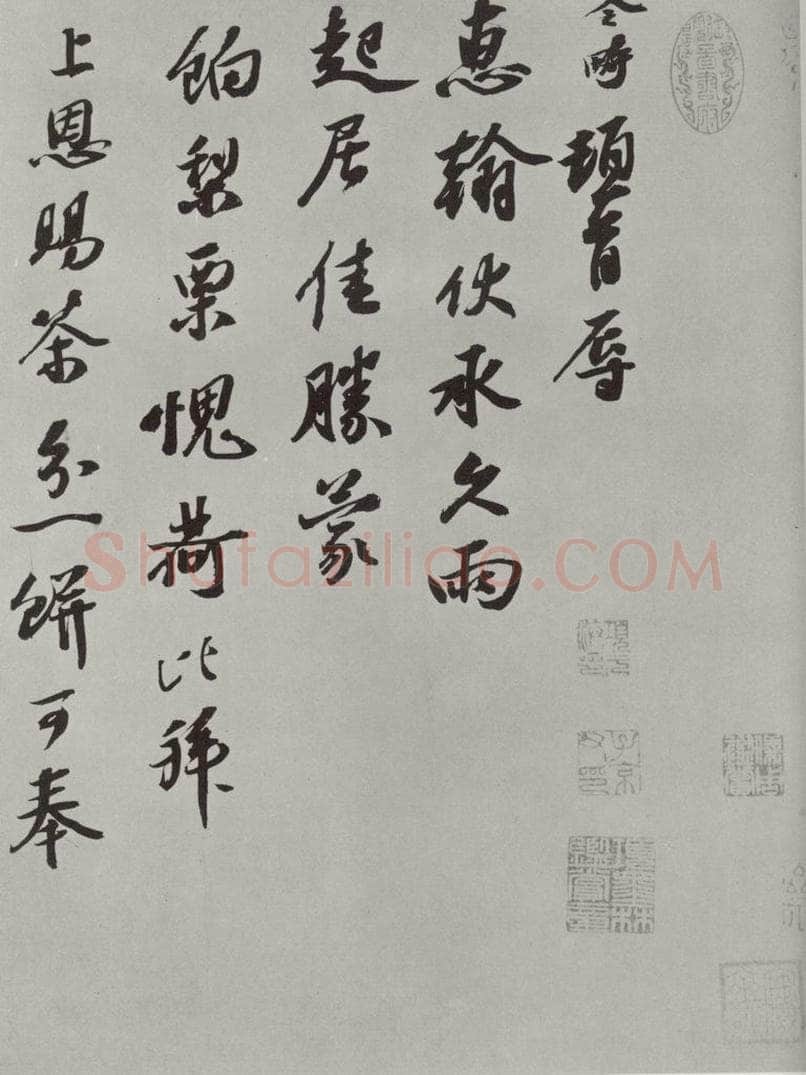 令畤頓首辱
惠翰伏承久雨
起居佳勝蒙
餉梨栗愧荷比拜
上恩賜茶分一餅可奉
Shufaziliao.COM
子京